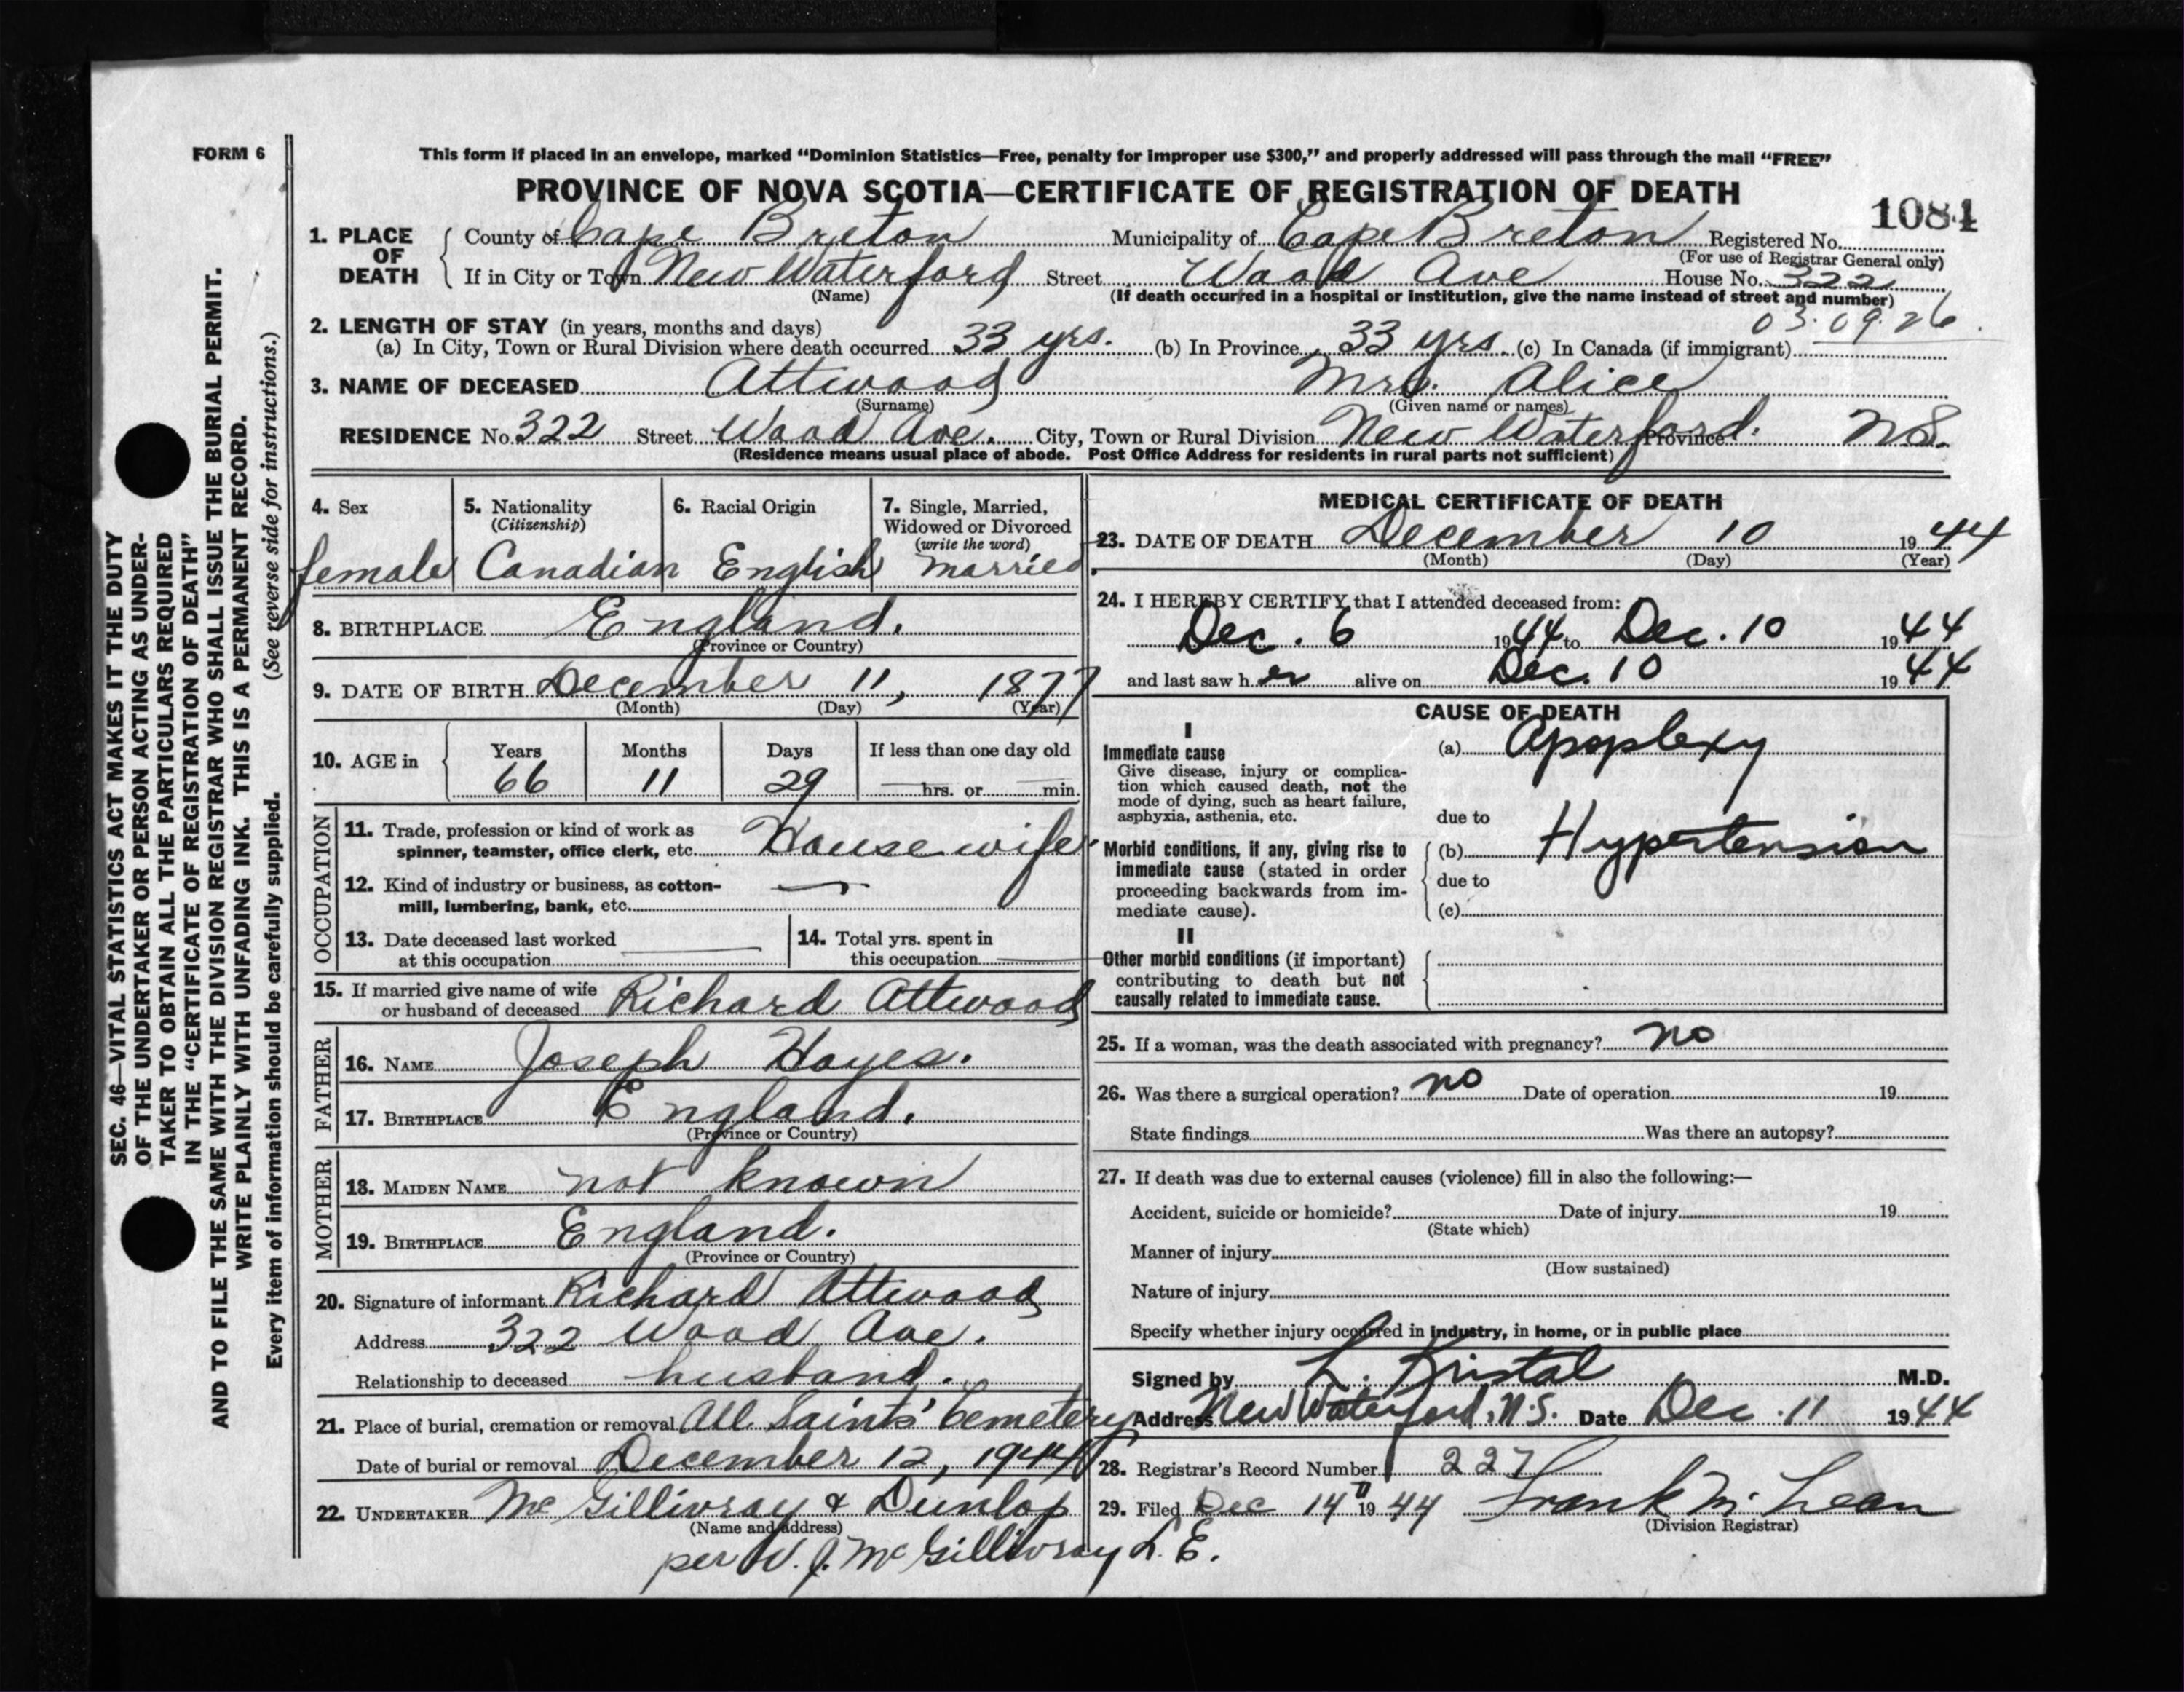 FORM 6
This form if placed in an envelope, marked “Dominion Statistics—Free, penalty for improper use $300,” and properly addressed will pass through the mail “FREE”
PROVINCE OF NOVA SCOTIA—CERTIFICATE OF REGISTRATION OF DEATH
1084
1. PLACE OF DEATH County of Cape Breton Municipality of Cape Breton Registered No.
(For use of Registrar General only)
If in City or Town New Waterford Street Wood Ave House No. 322
(Name) (If death occurred in a hospital or institution, give the name instead of street and number)
03.09.26
2. LENGTH OF STAY (in years, months and days)
(a) In City, Town or Rural Division where death occurred 33 yrs. (b) In Province 33 yrs. (c) In Canada (if immigrant)
3. NAME OF DECEASED Attwood Mrs. Alice
(Surname) (Given name or names)
RESIDENCE No. 322 Street Wood Ave. City, Town or Rural Division New Waterford. Province N.S.
(Residence means usual place of abode. Post Office Address for residents in rural parts not sufficient)
4. Sex 5. Nationality (Citizenship) 6. Racial Origin 7. Single, Married, Widowed or Divorced (write the word)
female Canadian English married
8. BIRTHPLACE England.
(Province or Country)
9. DATE OF BIRTH December 11, 1877
(Month) (Day) (Year)
10. AGE in Years Months Days If less than one day old
66 11 29 hrs. or min.
OCCUPATION
11. Trade, profession or kind of work as
spinner, teamster, office clerk, etc. Housewife.
12. Kind of industry or business, as cotton-
mill, lumbering, bank, etc. —
13. Date deceased last worked
at this occupation
14. Total yrs. spent in
this occupation
15. If married give name of wife
or husband of deceased Richard Attwood
FATHER
16. NAME Joseph Hayes.
17. BIRTHPLACE England.
(Province or Country)
MOTHER
18. MAIDEN NAME not known
19. BIRTHPLACE England.
(Province or Country)
20. Signature of informant Richard Attwood
Address 322 Wood Ave.
Relationship to deceased husband.
21. Place of burial, cremation or removal All Saints' Cemetery
Date of burial or removal December 12, 1944
22. UNDERTAKER McGillivray & Dunlop
(Name and address)
per W. J. McGillivray L.E.
MEDICAL CERTIFICATE OF DEATH
23. DATE OF DEATH December 10 1944
(Month) (Day) (Year)
24. I HEREBY CERTIFY that I attended deceased from:
Dec. 6 1944 to Dec. 10 1944
and last saw her alive on Dec. 10 1944
CAUSE OF DEATH
I
Immediate cause (a) Apoplexy
Give disease, injury or complica-
tion which caused death, not the
mode of dying, such as heart failure,
asphyxia, asthenia, etc.
due to
Morbid conditions, if any, giving rise to
immediate cause (stated in order
proceeding backwards from im-
mediate cause).
(b) Hypertension
due to
(c)
II
Other morbid conditions (if important)
contributing to death but not
causally related to immediate cause.
25. If a woman, was the death associated with pregnancy? no
26. Was there a surgical operation? no Date of operation 19
State findings Was there an autopsy?
27. If death was due to external causes (violence) fill in also the following:—
Accident, suicide or homicide? Date of injury 19
(State which)
Manner of injury
(How sustained)
Nature of injury
Specify whether injury occurred in industry, in home, or in public place
Signed by L. Kristal M.D.
Address New Waterford, N.S. Date Dec. 11 1944
28. Registrar's Record Number 227
29. Filed Dec 14 1944 Frank McLean
(Division Registrar)
SEC. 46—VITAL STATISTICS ACT MAKES IT THE DUTY
OF THE UNDERTAKER OR PERSON ACTING AS UNDER-
TAKER TO OBTAIN ALL THE PARTICULARS REQUIRED
IN THE “CERTIFICATE OF REGISTRATION OF DEATH”
AND TO FILE THE SAME WITH THE DIVISION REGISTRAR WHO SHALL ISSUE THE BURIAL PERMIT.
WRITE PLAINLY WITH UNFADING INK. THIS IS A PERMANENT RECORD.
Every item of information should be carefully supplied. (See reverse side for instructions.)